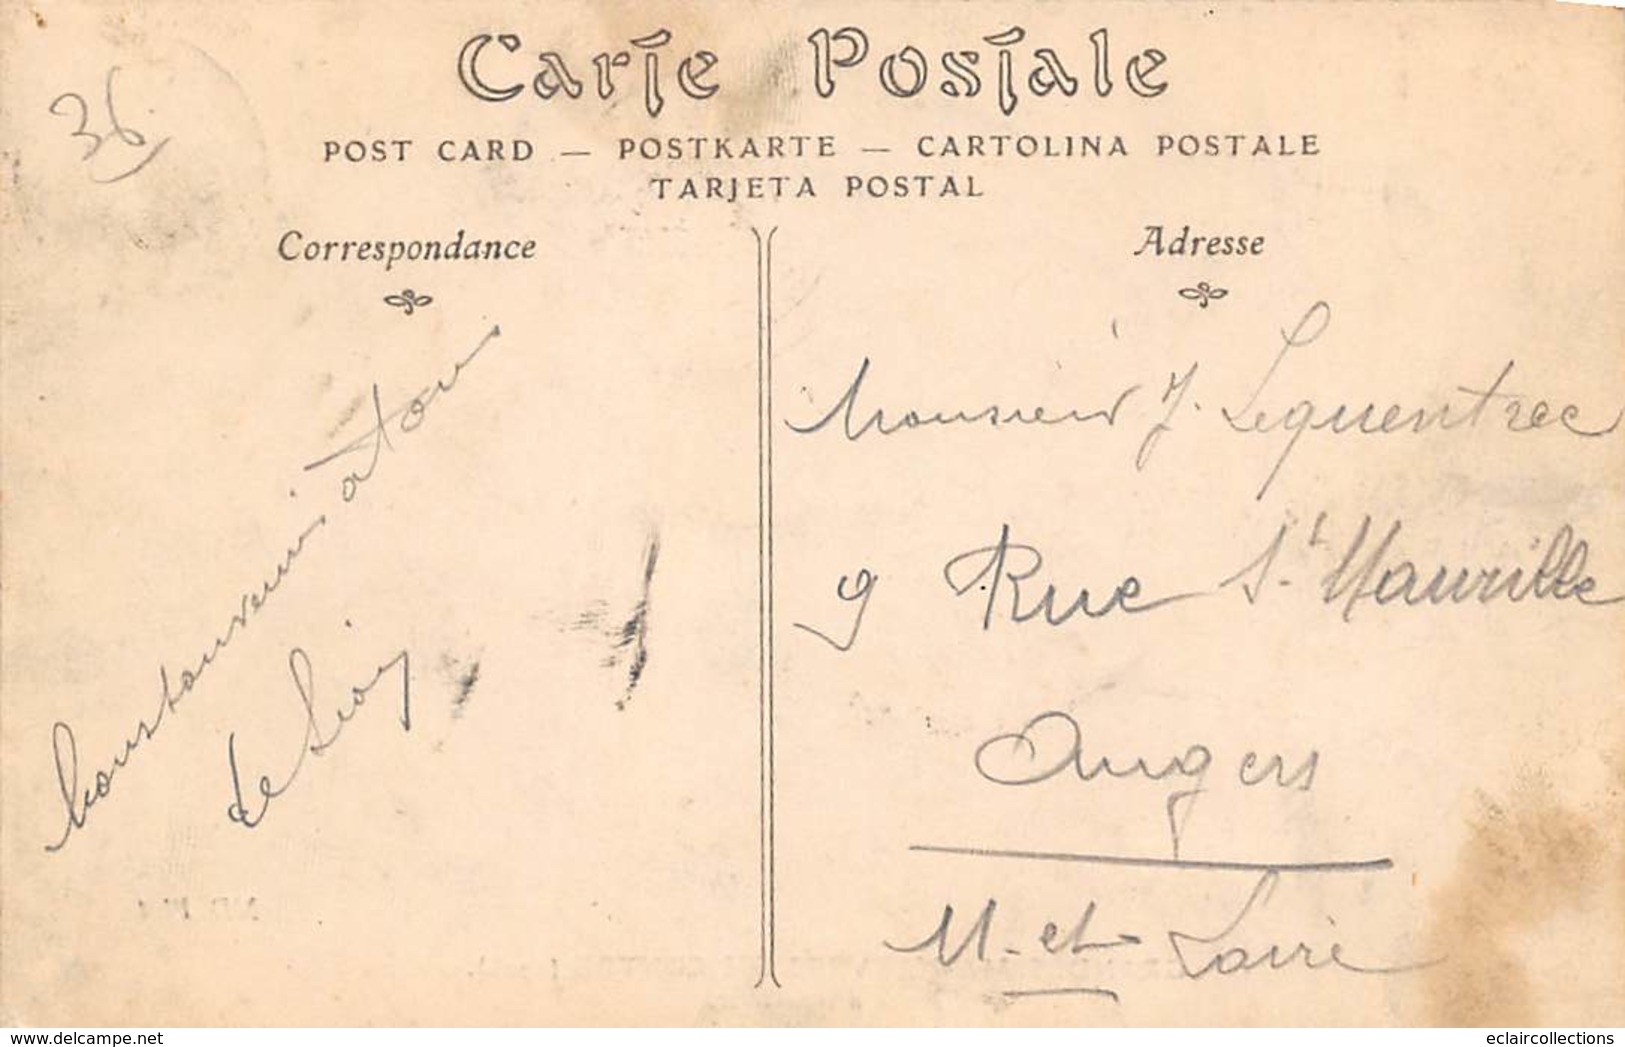 36
Carte Postale
POST CARD — POSTKARTE — CARTOLINA POSTALE
TARJETA POSTAL
Correspondance
Adresse
bon souvenir à tous
de
Monsieur J. Lequentrec
9 Rue St Maurille
Angers
M-et-Loire
www.delcampe.net
eclaircollections